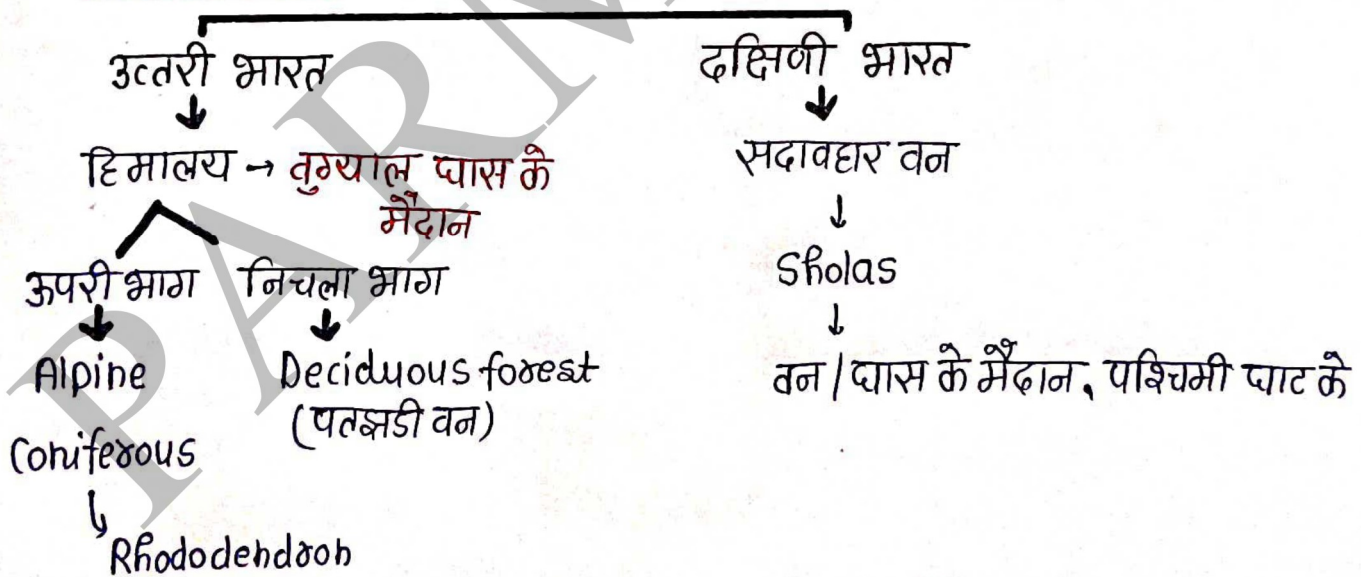 उत्तरी भारत
हिमालय → वुग्याल घास के
मैदान
ऊपरी भाग निचला भाग
Alpine
Coniferous
Rhododendron
Deciduous forest
(पतझडी वन)
दक्षिणी भारत
सदावहार वन
Sholas
वन / घास के मैदान, पश्चिमी घाट के